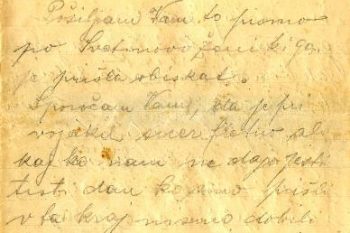 Pošiljam Vam to pismo
po Svetinovi ženi ki ga
je prišla obiskat.
Sporočam Vam, da je pri
vojakih luštno ali
kaj ko nam ne dajo jesti
tisti dan ko smo prišli
v ta kraj nismo dobili